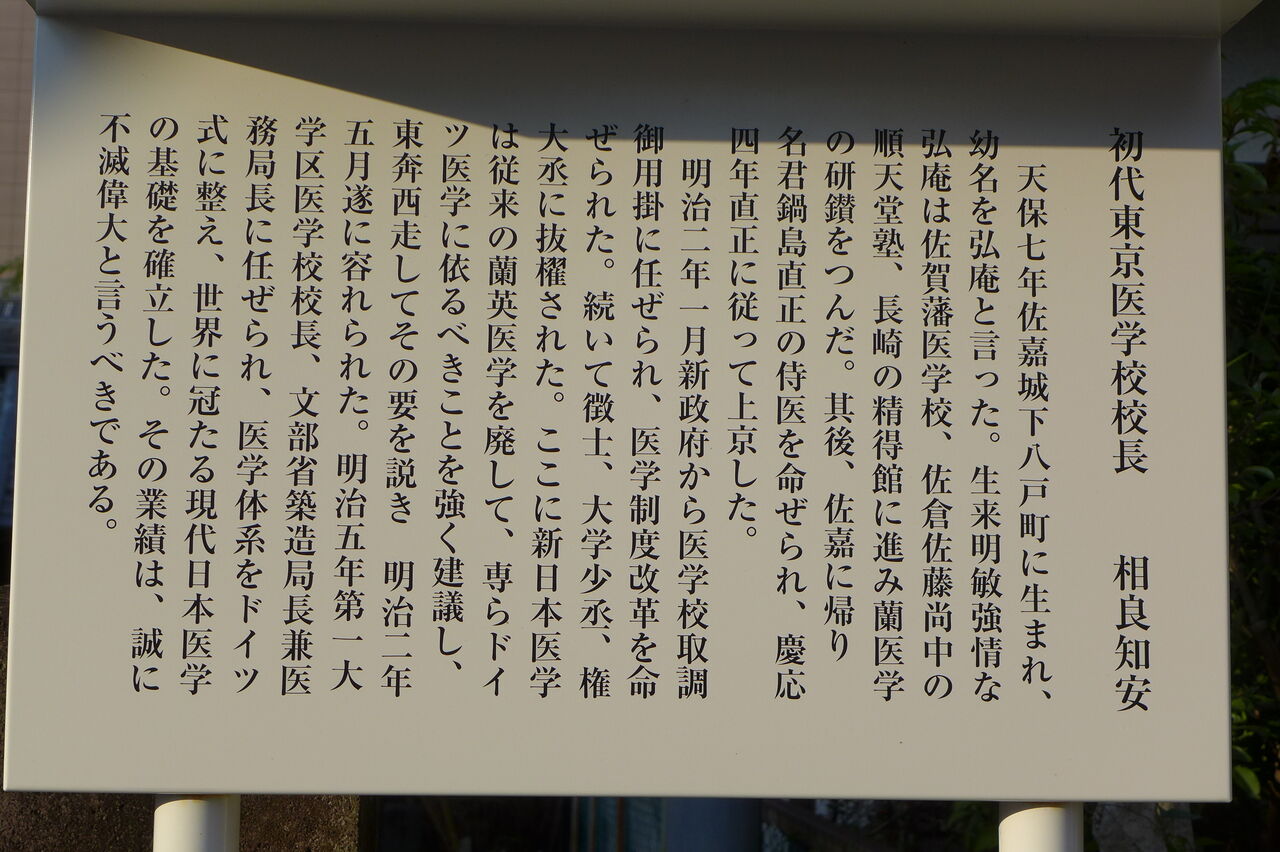 初代東京医学校校長　　相良知安
天保七年佐嘉城下八戸町に生まれ、
幼名を弘庵と言った。生来明敏強情な
弘庵は佐賀藩医学校、佐倉佐藤尚中の
順天堂塾、長崎の精得館に進み蘭医学
の研鑚をつんだ。其後、佐嘉に帰り
名君鍋島直正の侍医を命ぜられ、慶応
四年直正に従って上京した。
明治二年一月新政府から医学校取調
御用掛に任ぜられ、医学制度改革を命
ぜられた。続いて徴士、大学少丞、権
大丞に抜擢された。ここに新日本医学
は従来の蘭英医学を廃して、専らドイ
ツ医学に依るべきことを強く建議し、
東奔西走してその要を説き　明治二年
五月遂に容れられた。明治五年第一大
学区医学校校長、文部省築造局長兼医
務局長に任ぜられ、医学体系をドイツ
式に整え、世界に冠たる現代日本医学
の基礎を確立した。その業績は、誠に
不滅偉大と言うべきである。